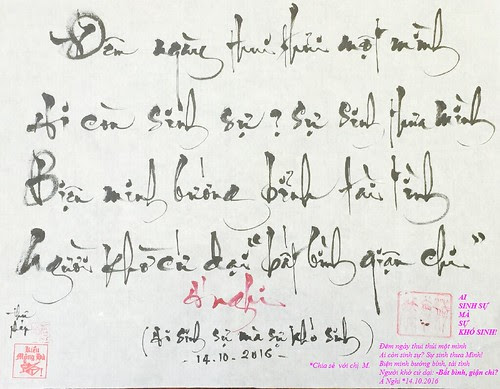 Đêm ngày thui thủi một mình
Ai còn sinh sự? Sự sinh thưa mình
Biện minh bướng bỉnh tài tình
Người khờ cứ dại "bất bình giận chi"
Á Nghi
(Ai sinh sự mà sự khó sinh)
-14.10-2016-
thư pháp
AI
SINH SỰ
MÀ
SỰ
KHÓ SINH!
Đêm ngày thui thủi một mình
Ai còn sinh sự? Sự sinh thưa Mình!
Biện minh bướng bỉnh, tài tình
*Chia sẻ với chị M.
Người khờ cứ dại: -Bất bình, giận chi?
Á Nghi *14.10.2016